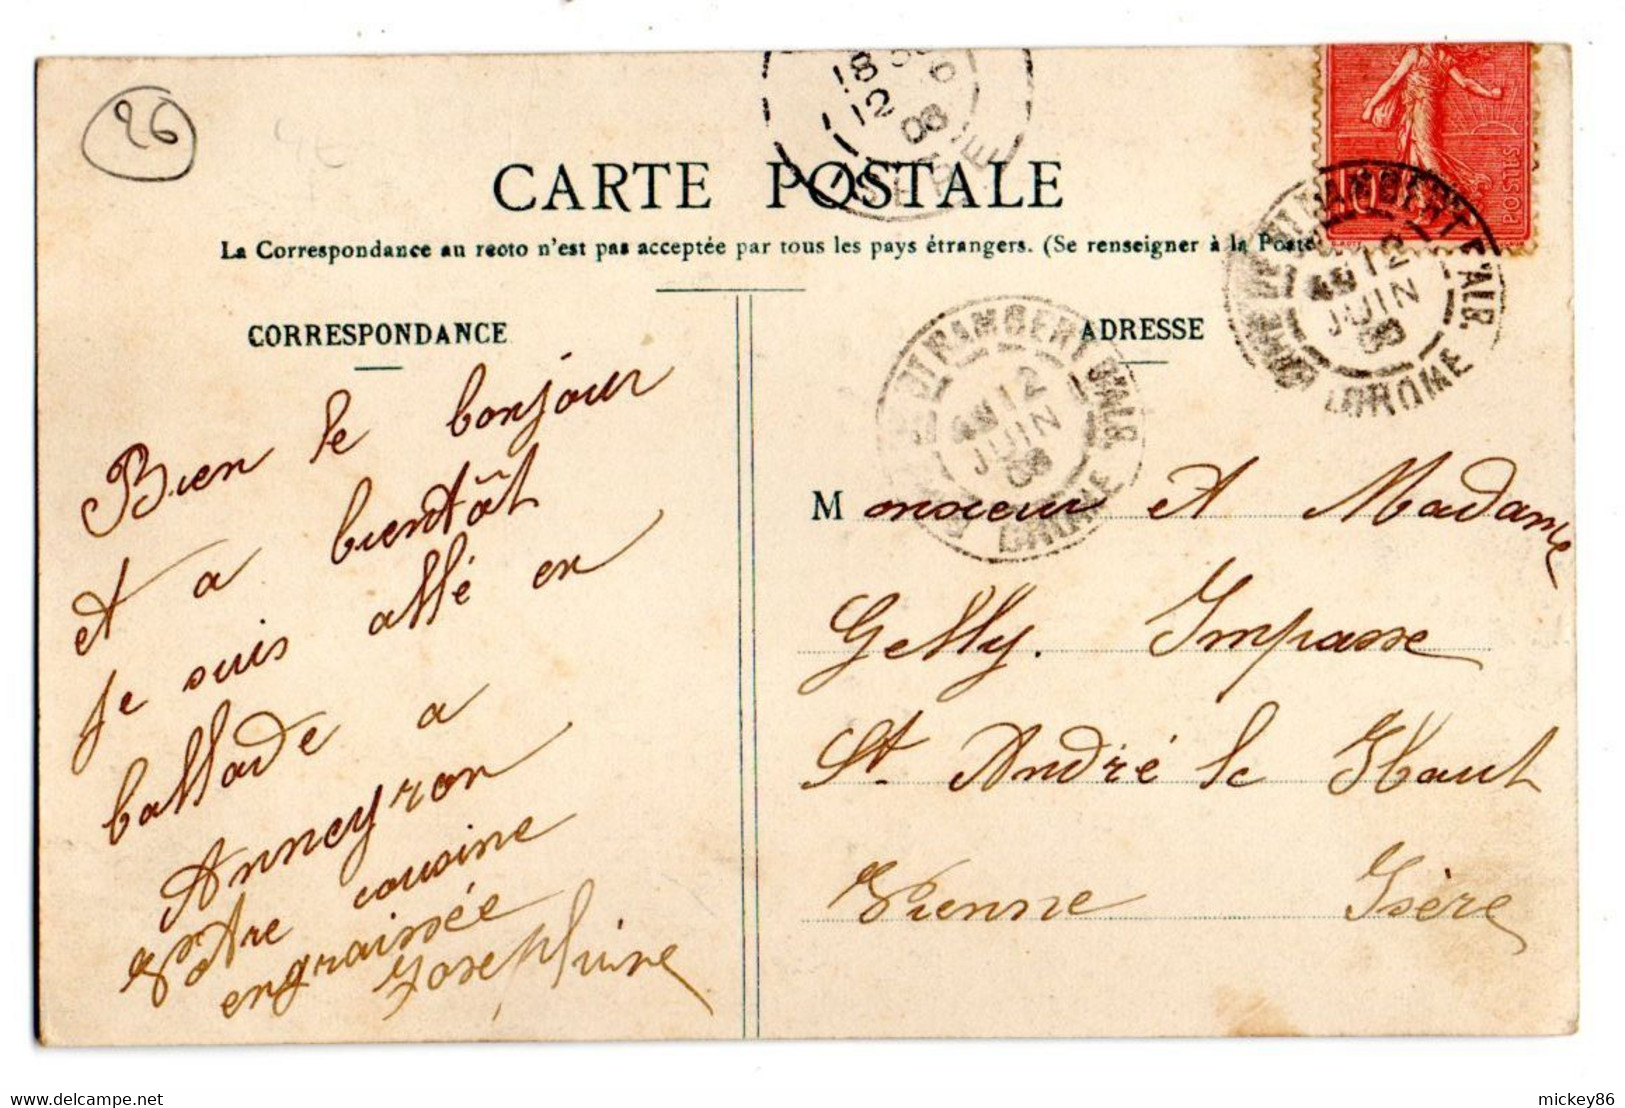 26
18
12
06
ISERE
CARTE POSTALE
La Correspondance au recto n'est pas acceptée par tous les pays étrangers. (Se renseigner à la Poste
10
POSTES
ST RAMBERT D'ALB.
12
JUIN
06
DROME
CORRESPONDANCE
ADRESSE
ST RAMBERT D'ALB.
12
JUIN
06
DROME
Bien le bonjour
et a bientôt
je suis allé en
ballade a
Anneyron
Votre cousine
engraissée
Josephine
Monsieur et Madame
Gelly. Impasse
St André le Haut
Vienne Isère
delcampe.net
mickey86